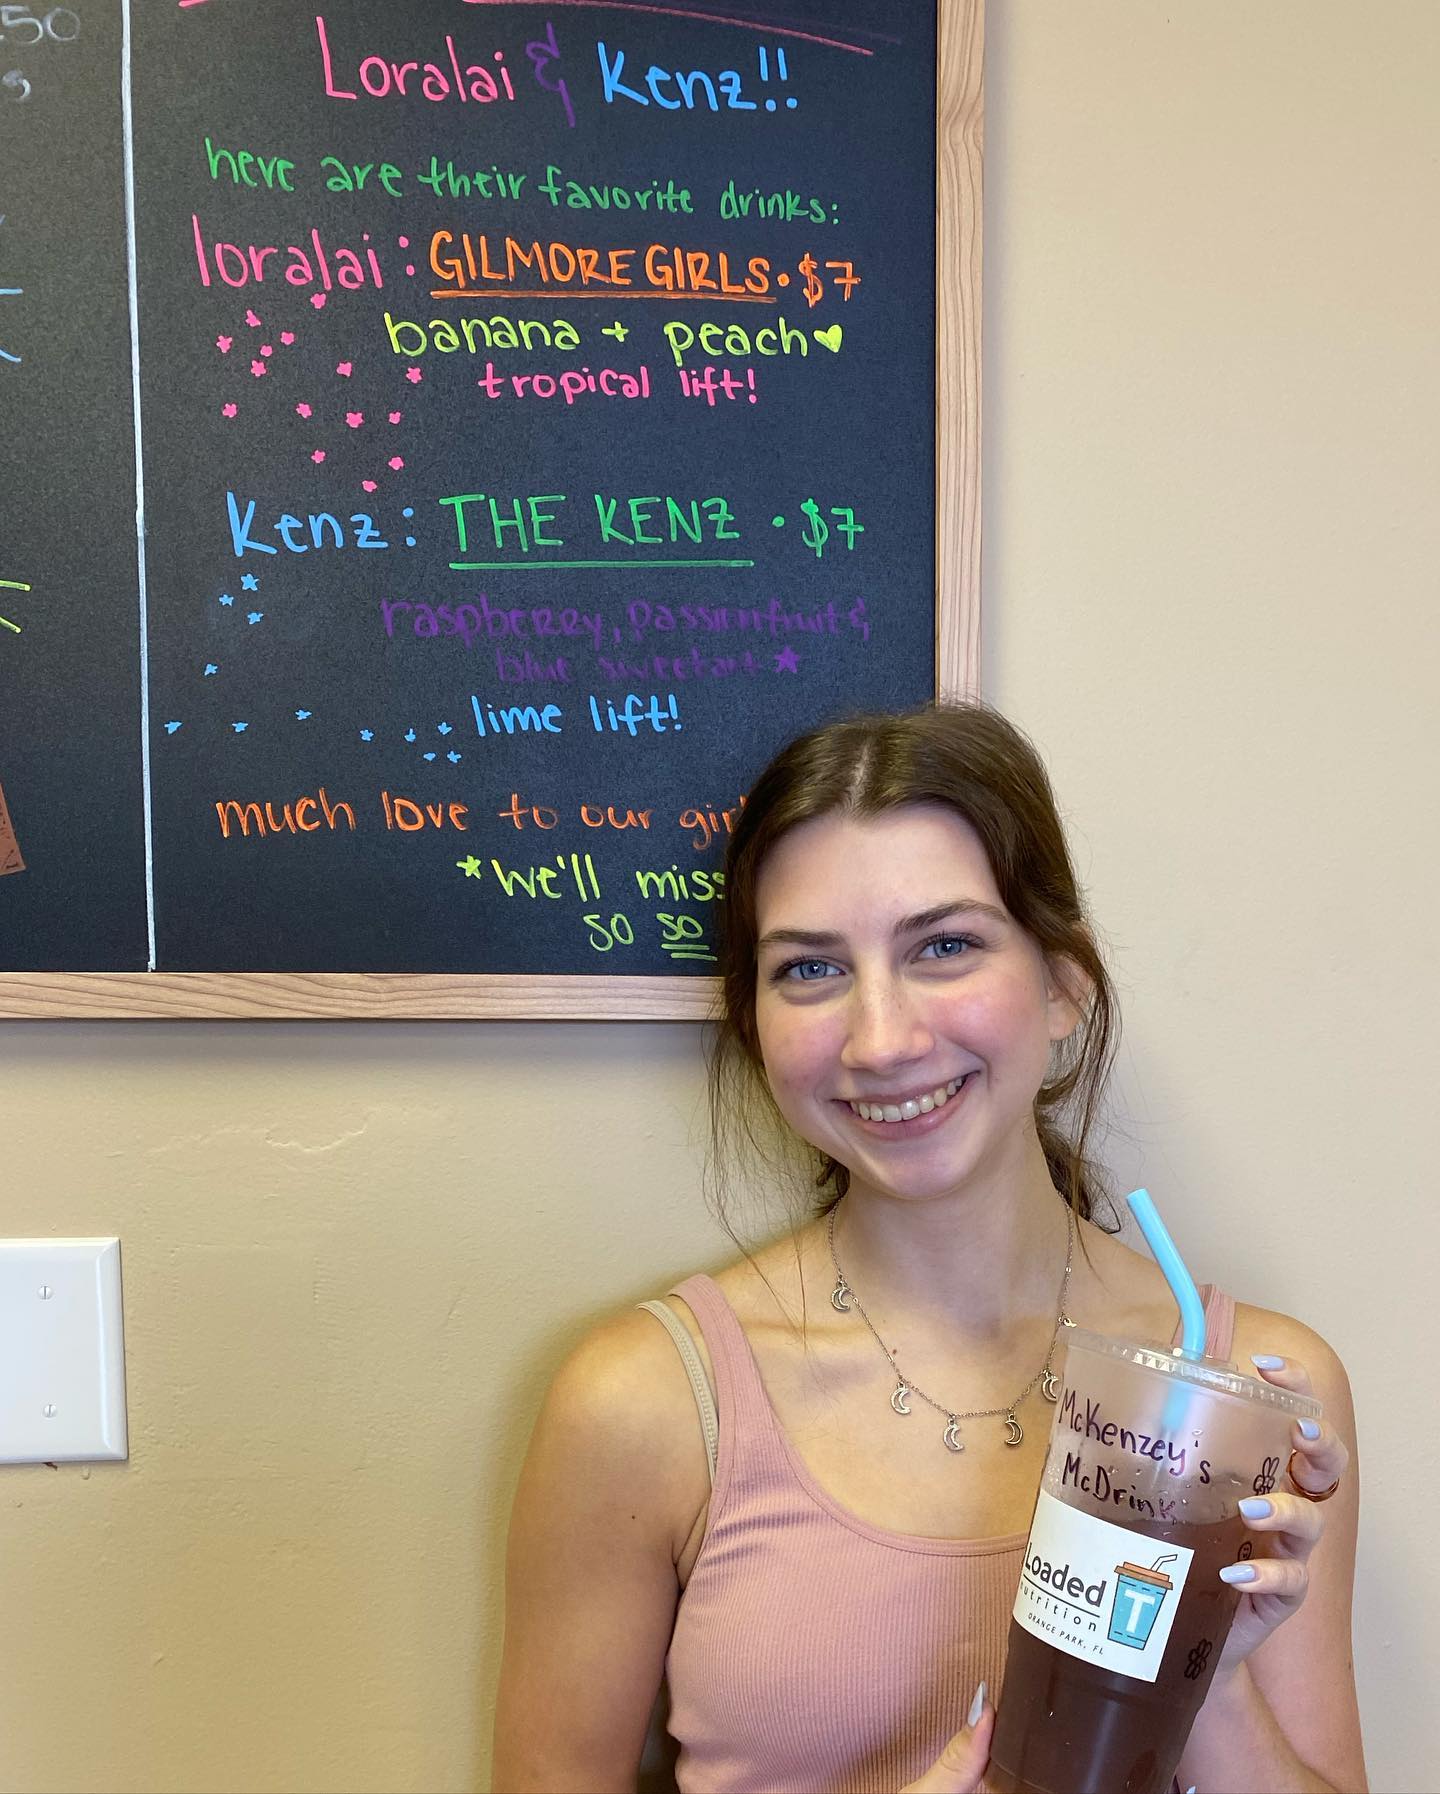 50
Loralai & Kenz!!
here are their favorite drinks:
loralai: GILMORE GIRLS • $7
banana + peach
tropical lift!
Kenz: THE KENZ • $7
raspberry, passionfruit &
blue sweetart
lime lift!
much love to our
We'll miss
so so
McKenzey's
McDrink
Loaded
nutrition
ORANGE PARK, FL
T